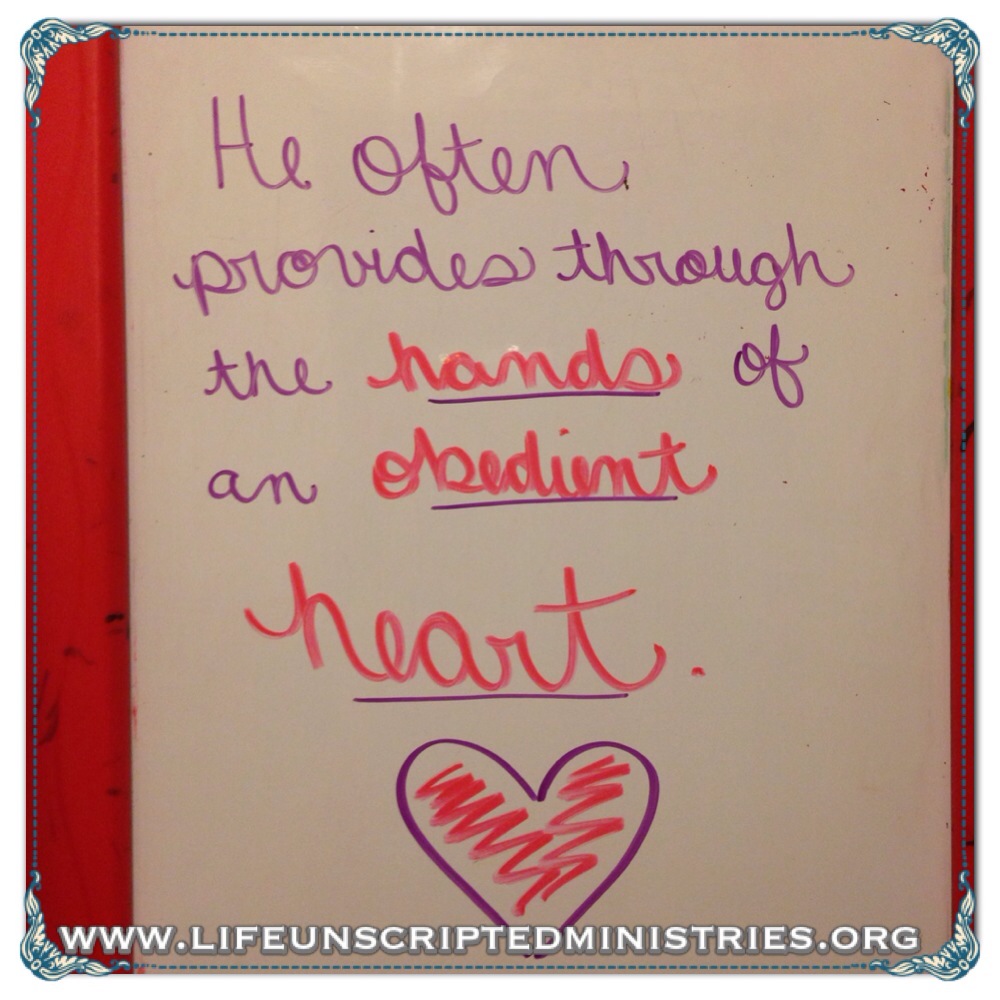 He often
provides through
the hands of
an obedient
heart.
WWW.LIFEUNSCRIPTEDMINISTRIES.ORG